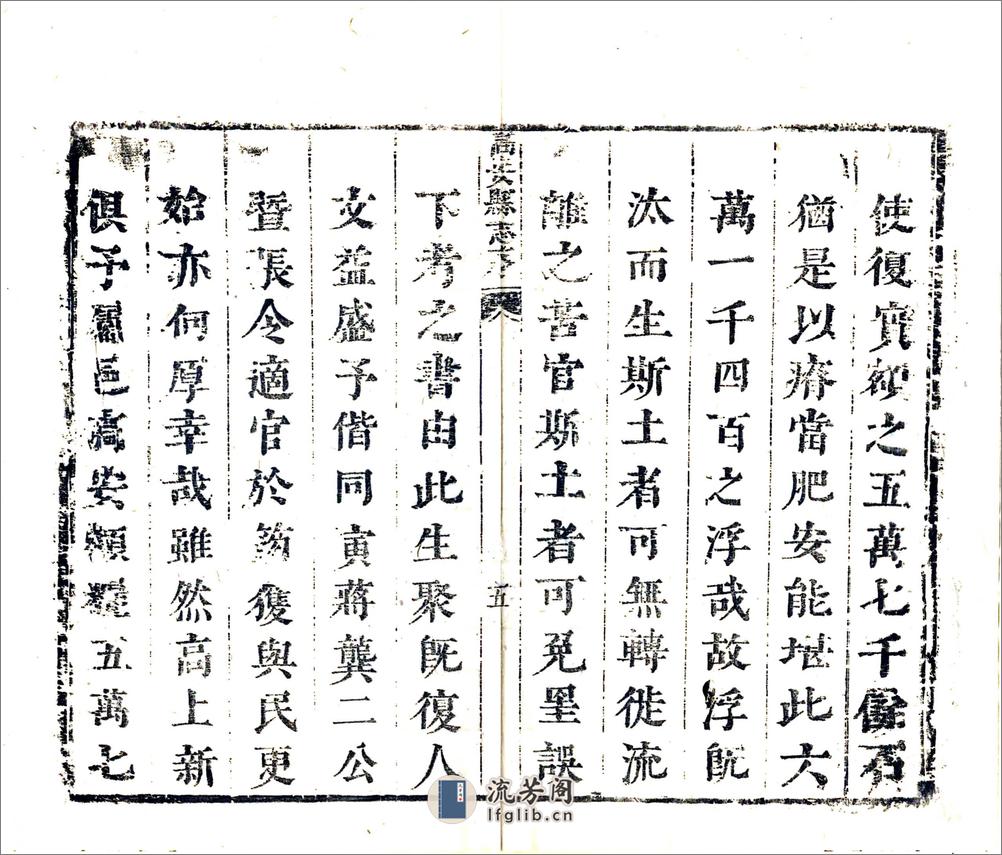 使復實額之五萬七千餘石
猶是以瘠當肥安能堪此六
萬一千四百之浮哉故浮既
汰而生斯土者可無轉徙流
離之苦官斯土者可免罣誤
高安縣志序
五
下考之書由此生聚既復人
文益盛予偕同寅蔣龔二公
暨張令適官於筠獲與民更
始亦何厚幸哉雖然高上新
俱予屬邑高安額糧五萬七
流芳阁
lfglib.cn